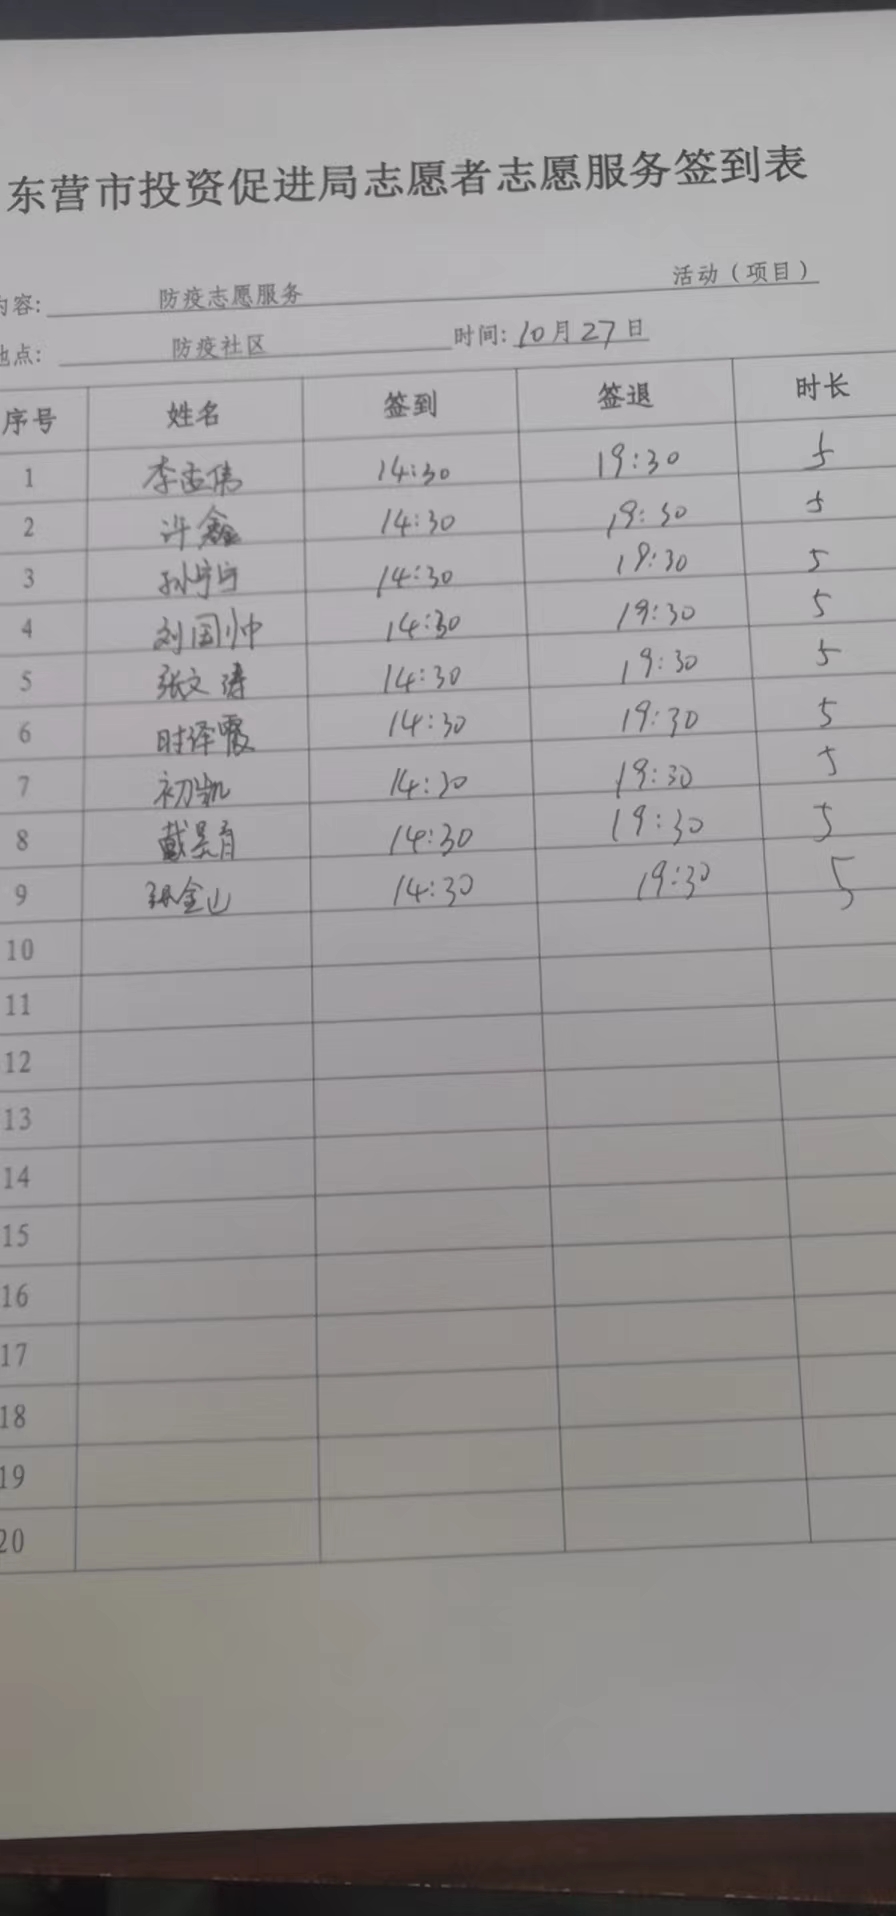 东营市投资促进局志愿者志愿服务签到表
内容: 防疫志愿服务 活动（项目）
地点: 防疫社区 时间: 10月27日
序号 姓名 签到 签退 时长
1 李孟伟 14:30 19:30 5
2 许鑫 14:30 19:30 5
3 孙宁宁 14:30 19:30 5
4 刘国帅 14:30 19:30 5
5 张文涛 14:30 19:30 5
6 时泽霞 14:30 19:30 5
7 初凯 14:30 19:30 5
8 戴昊育 14:30 19:30 5
9 张金山 14:30 19:30 5
10
11
12
13
14
15
16
17
18
19
20